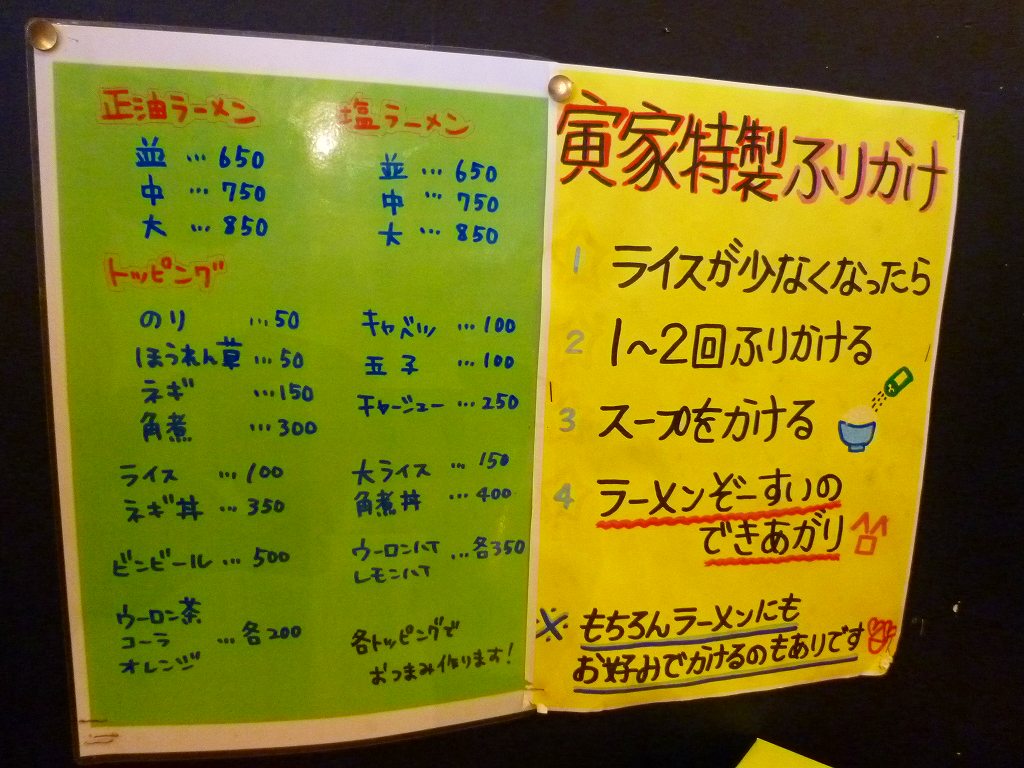 正油ラーメン
並 … 650
中 … 750
大 … 850
塩ラーメン
並 … 650
中 … 750
大 … 850
トッピング
のり … 50
ほうれん草 … 50
ネギ … 150
角煮 … 300
キャベツ … 100
玉子 … 100
チャーシュー … 250
ライス … 100
ネギ丼 … 350
大ライス … 150
角煮丼 … 400
ビンビール … 500
ウーロンハイ
レモンハイ … 各350
ウーロン茶
コーラ … 各200
オレンジ
各トッピングで
おつまみ作ります!
寅家特製ふりかけ
1 ライスが少なくなったら
2 1~2回ふりかける
3 スープをかける
4 ラーメンぞーすいの
できあがり
※ もちろんラーメンにも
お好みでかけるのもありです